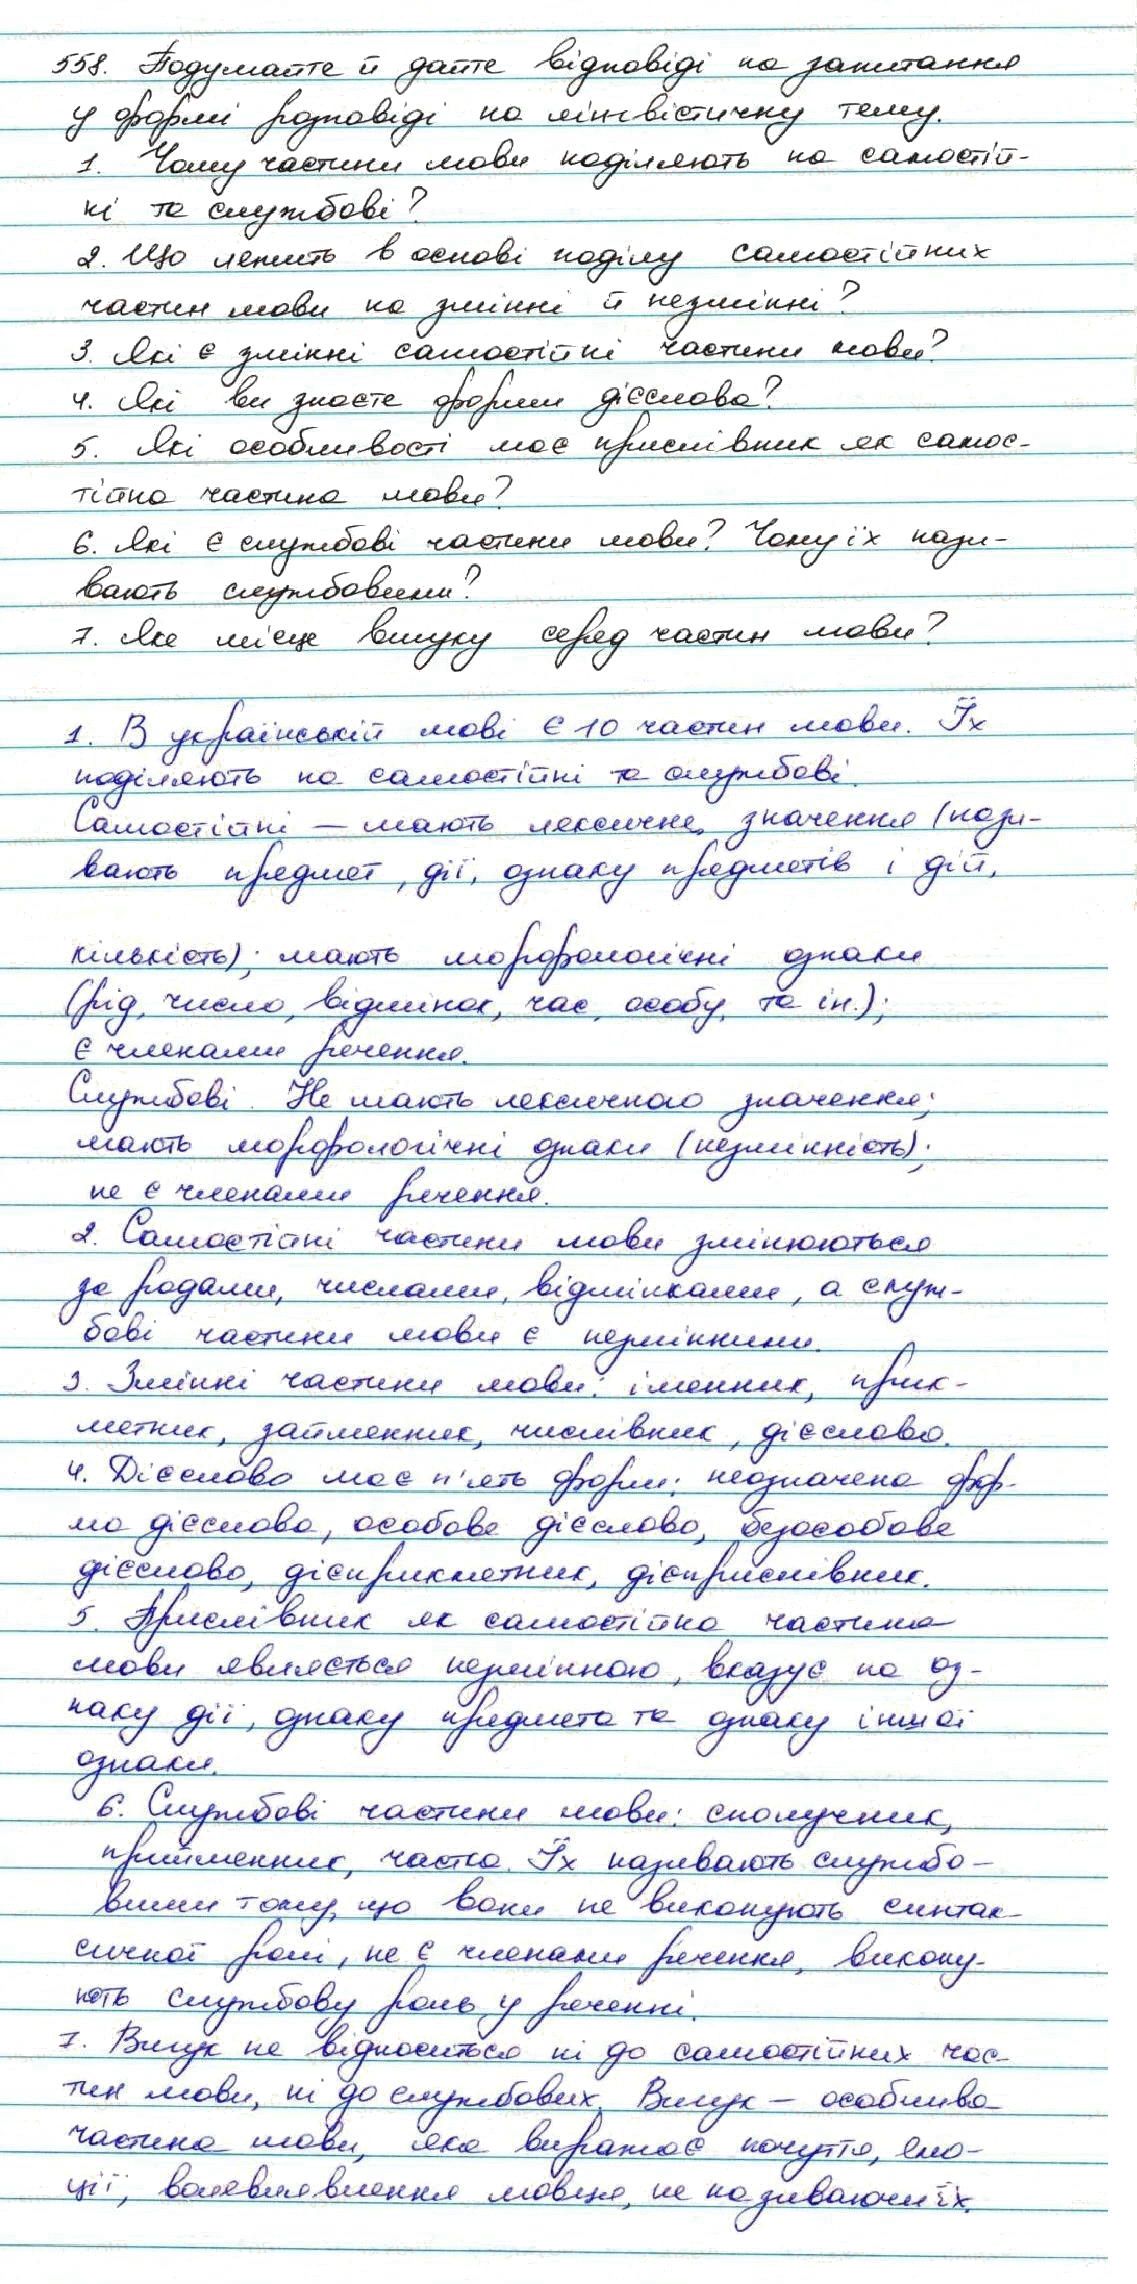 558. Подумайте й дайте відповіді на запитання
у формі розповіді на лінгвістичну тему.
1. Чому частини мови поділяють на самостій-
ні та службові?
2. Що лежить в основі поділу самостійних
частин мови на змінні й незмінні?
3. Які є змінні самостійні частини мови?
4. Які ви знаєте форми дієслова?
5. Які особливості має прислівник як самос-
тійна частина мови?
6. Які є службові частини мови? Чому їх нази-
вають службовими?
7. Яке місце вигуку серед частин мови?
1. В українській мові є 10 частин мови. Їх
поділяють на самостійні та службові.
Самостійні – мають лексичне значення (нази-
вають предмет, дії, ознаку предметів і дій,
кількість); мають морфологічні ознаки
(рід, число, відмінок, час, особу, та ін.);
є членами речення.
Службові. Не мають лексичного значення;
мають морфологічні ознаки (незмінність);
не є членами речення.
2. Самостійні частини мови змінюються
за родами, числами, відмінками, а служ-
бові частини мови є незмінними.
3. Змінні частини мови: іменник, прик-
метник, займенник, числівник, дієслово.
4. Дієслово має п'ять форм: неозначена фор-
ма дієслова, особове дієслово, безособове
дієслово, дієприкметник, дієприслівник.
5. Прислівник як самостійна частина
мови являється незмінною, вказує на оз-
наку дії, ознаку предмета та ознаку іншої
ознаки.
6. Службові частини мови: сполучник,
прийменник, частка. Їх називають службо-
вими тому, що вони не виконують синтак-
сичної ролі, не є членами речення, викону-
ють службову роль у реченні.
7. Вигук не відноситься ні до самостійних час-
тин мови, ні до службових. Вигук – особлива
частина мови, яка виражає почуття, емо-
ції, волевиявлення мовця, не називаючи їх.